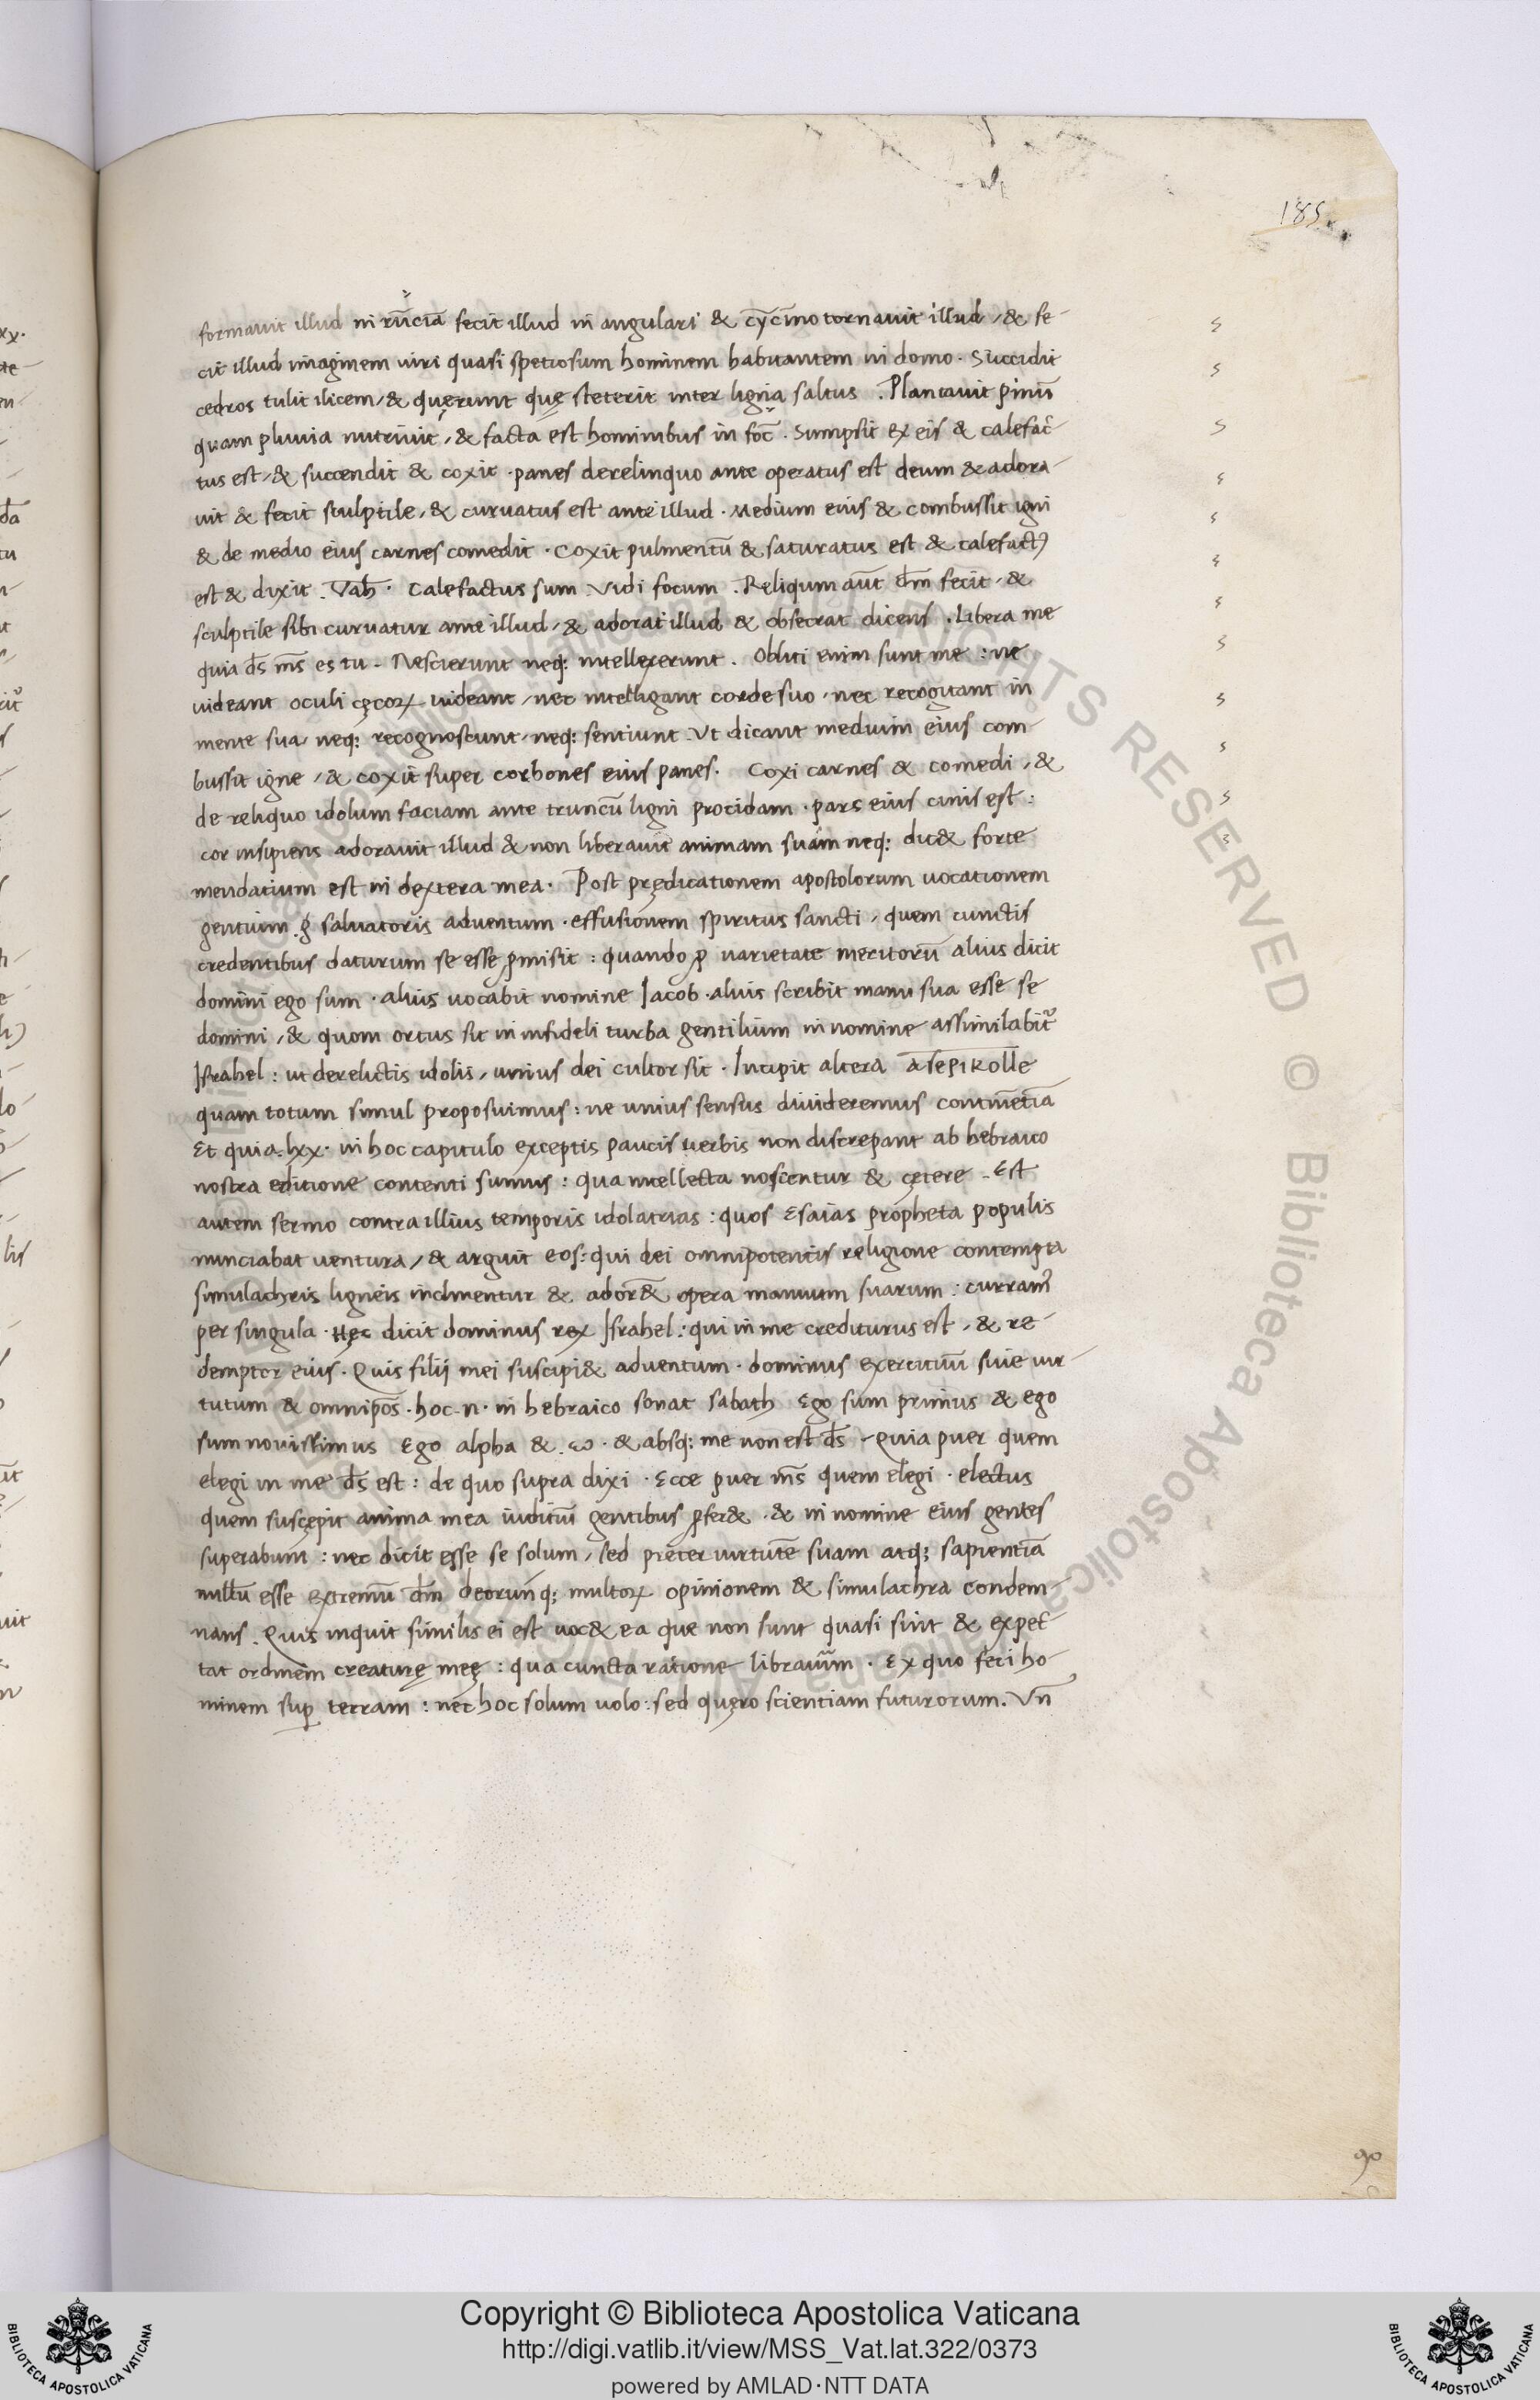 185
formauit illud in rūciā fecit illud in angulari & cȳcīno tornauit illud, & fe-
cit illud imaginem uiri quasi spetiosum hominem habitantem in domo. Succidit
cedros tulit ilicem, & quęrunt quę steterit inter ligna saltus. Plantauit pinū
quam pluuia nutriuit, & facta est hominibus in foc̄. Sumpsit ex eis & calefac-
tus est, & succendit & coxit. panes derelinquo ante operatus est deum & adora-
uit & fecit sculptile, & curuatus est ante illud. Medium eius & combussit igni
& de medio eius carnes comedit. Coxit pulmentū & saturatus est & calefactꝰ
est & dixit. Vah. Calefactus sum. Vidi focum. Reliqum aūt dm̄ fecit, &
sculptile sibi curuatur ante illud, & adorat illud & obsecrat dicens. Libera me
quia ds̄ ms̄ es tu. Nescierunt neq: intellexerunt. Obliti enim sunt me: ne
uideant oculi cęcoꝝ uideant, nec intelligant corde suo, nec recogitant in
mente sua, neq: recognoscunt, neq: sentiunt. Vt dicant medium eius com-
bussit igne, & coxit super corbones eius panes. Coxi carnes & comedi, &
de reliquo idolum faciam ante truncū ligni procidam. pars eius cinis est:
cor insipiens adorauit illud & non liberauit animam suam neq: dic& forte
mendatium est in dextera mea. Post prędicationem apostolorum uocationem
gentium. saluatoris aduentum. effusionem spiritus sancti, quem cunctis
credentibus daturum se esse ꝓmisit: quando ꝓ uarietate meritorū alius dicit
domini ego sum. alius uocabit nomine Jacob. alius scribit manu sua esse se
domini, & quom ortus sit in infideli turba gentilium in nomine assimilabit᷑
Israhel: ut derelictis idolis, unius dei cultor sit. Incipit altera
quam totum simul proposuimus: ne unius sensus diuideremus continētia
Et quia. lxx. in hoc capitulo exceptis paucis uerbis non discrepant ab hebraico
nostra editione contenti sumus: qua intellecta noscentur & cętere. Est
autem sermo contra illius temporis idolatrias: quos Esaias propheta populis
nunciabat uentura, & arguit eos: qui dei omnipotentis religione contempta
simulachris ligneis inclinentur & ador& opera manuum suarum: curram᷒
per singula. Hęc dicit dominus rex Israhel: qui in me crediturus est, & re-
demptor eius. Quis filij mei suscipi& aduentum. dominus exercituū siue uir-
tutum & omnipos̄. hoc. n. in hebraico sonat sabath Ego sum primus & ego
sum nouissimus Ego alpha &. ω. & absq: me non est ds̄. Quia puer quem
elegi in me ds̄ est: de quo supra dixi. Ecce puer ms̄ quem elegi. electus
quem suscępit anima mea iuditiū gentibus ꝓfer&. & in nomine eius gentes
superabunt: nec dicit esse se solum, sed pręter uirtutē suam atq; sapientiā
nullū esse extremū dm̄ deorunq; multoꝝ opinionem & simulachra condem-
nans. Quis inquit similis ei est uoc& ea que non sunt quasi sint & expec-
tat ordinem creaturę meę: qua cuncta ratione libraui. Ex quo feci ho
minem suꝑ terram: nec hoc solum uolo: sed quęro scientiam futurorum. Vn̄
90
Copyright © Biblioteca Apostolica Vaticana
http://digi.vatlib.it/view/MSS_Vat.lat.322/0373
powered by AMLAD·NTT DATA